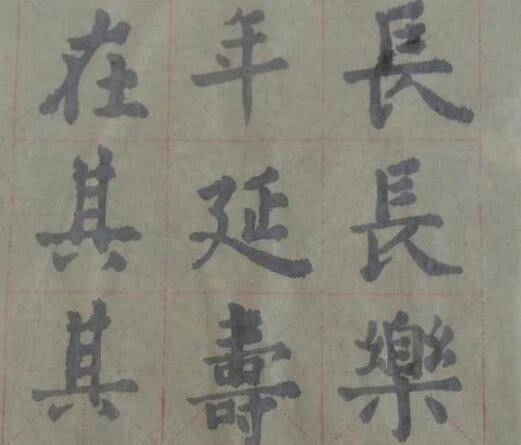 長長樂
年延壽
在其其